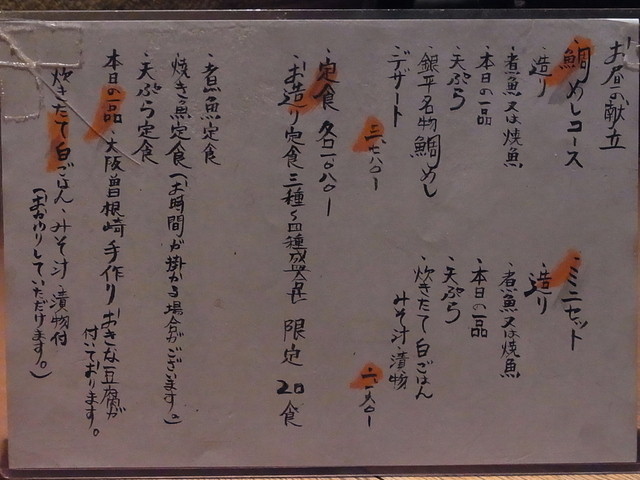 お昼の献立
・鯛めしコース
・造り
・煮魚又は焼魚
・本日の一品
・天ぷら
・銀平名物鯛めし
・デザート
三、七八〇ー
・ミニセット
・造り
・煮魚又は焼魚
・本日の一品
・天ぷら
・炊きたて白ごはん
みそ汁・漬物
・定食 各二〇八〇ー
・お造り定食 三種〜四種盛合せ 限定20食
・煮魚定食
・焼き魚定食(お時間が掛かる場合がございます。)
・天ぷら定食
本日の一品・大阪曽根崎手作りおきな豆腐が
付いております。
炊きたて白ごはん、みそ汁・漬物付
(おかわりしていただけます。)